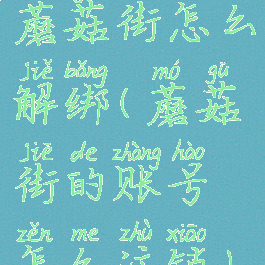 蘑菇街怎么
jiě bǎng mó gū
解绑(蘑菇
jiē de zhàng hào
街的账号
zěn me zhù xiāo
怎么注销)